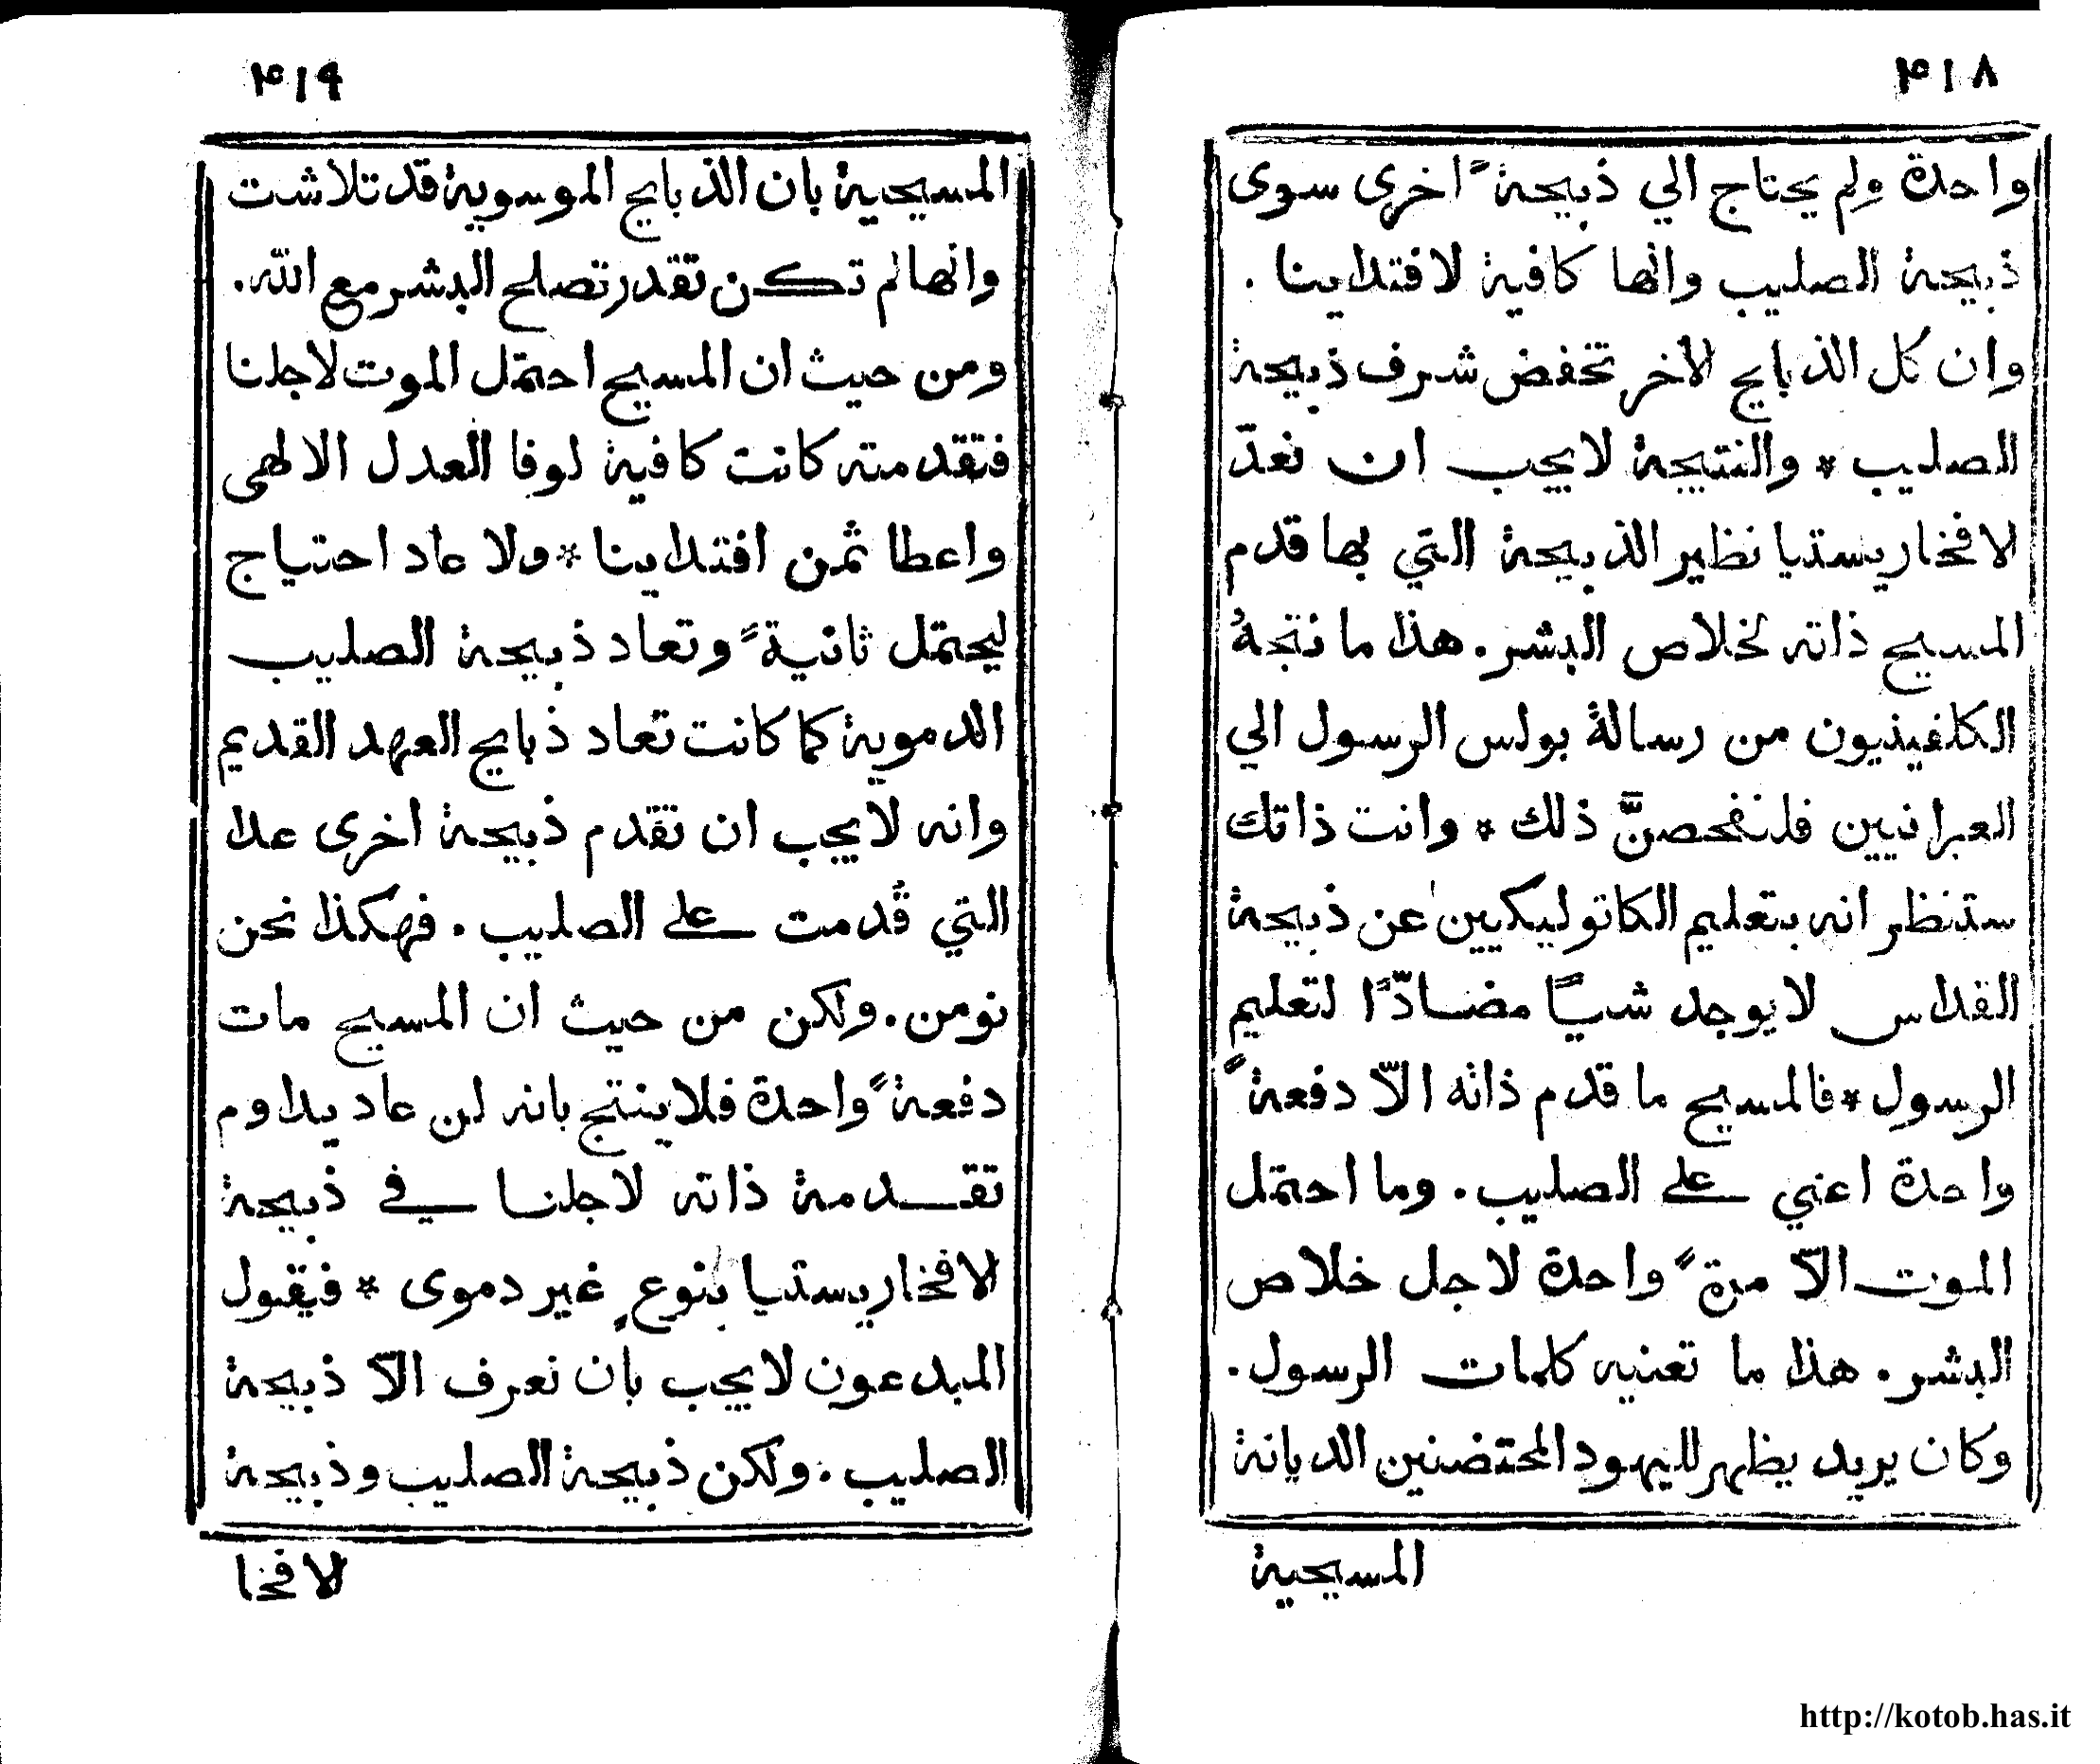 ٤١٨
واحدة ولم يحتاج الي ذبيحةً اخرى سوى
ذبيحة الصليب وانها كافية لافتداينا .
وان كل الذبايح الاخر تخفض شرف ذبيحة
الصليب * والنتيجة لايجب ان نعدّ
لافخاريستيا نظير الذبيحة التي بها قدم
المسيح ذاته لخلاص البشر. هذا ما نتجهُ
الكلفينيون من رسالة بولس الرسول الي
العبرانيين فلنفحصنَّ ذلك * وانت ذاتك
ستنظر انه بتعليم الكاتوليكيين عن ذبيحة
القداس لايوجد شيًا مضادًّا لتعليم
الرسول * فالمسيح ما قدم ذاته الّا دفعةً
واحدة اعني على الصليب. وما احتمل
الموت الّا مرةً واحدة لاجل خلاص
البشر. هذا ما تعنيه كلمات الرسول.
وكان يريد يظهر لليهود المحتضنين الديانة
المسيحية
٤١٩
المسيحية بان الذبايح الموسوية قد تلاشت
وانها لم تكن تقدر تصلح البشر مع الله.
ومن حيث ان المسيح احتمل الموت لاجلنا
فتقدمته كانت كافية لوفا العدل الالهى
واعطا ثمن افتداينا * ولا عاد احتياج
ليحتمل ثانيةً وتعاد ذبيحة الصليب
الدموية كما كانت تعاد ذبايح العهد القديم
وانه لايجب ان تقدم ذبيحة اخرى عدا
التي قُدمت على الصليب . فهكذا نحن
نومن. ولكن من حيث ان المسيح مات
دفعةً واحدة فلاينتج بانه لن عاد يداوم
تقدمة ذاته لاجلنا في ذبيحة
الافخاريستيا بنوعٍ غير دموى * فيقول
المبدعون لايجب بان نعرف الّا ذبيحة
الصليب . ولكن ذبيحة الصليب وذبيحة
الافخا
http://kotob.has.it